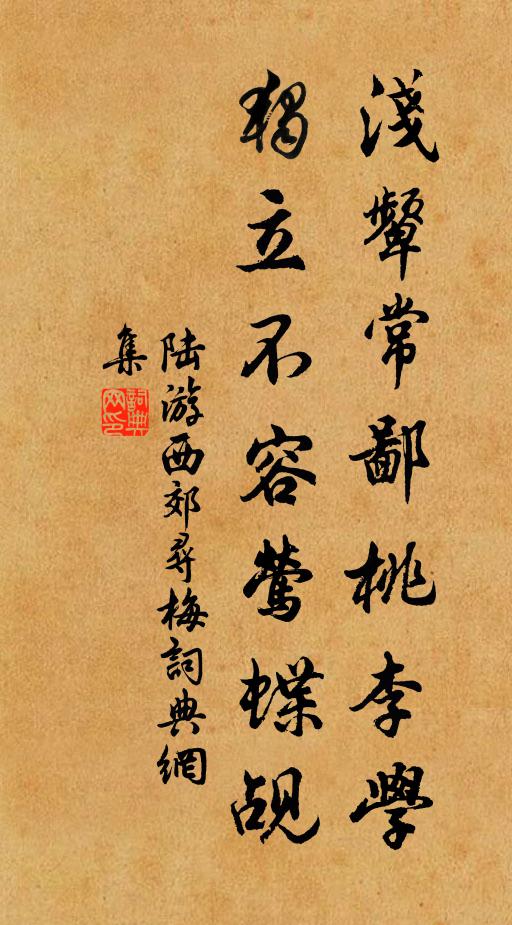 淺顰常鄙桃李學
獨立不容鶯蝶覘
陸游西郊尋梅詞典網
集
詞典
网印